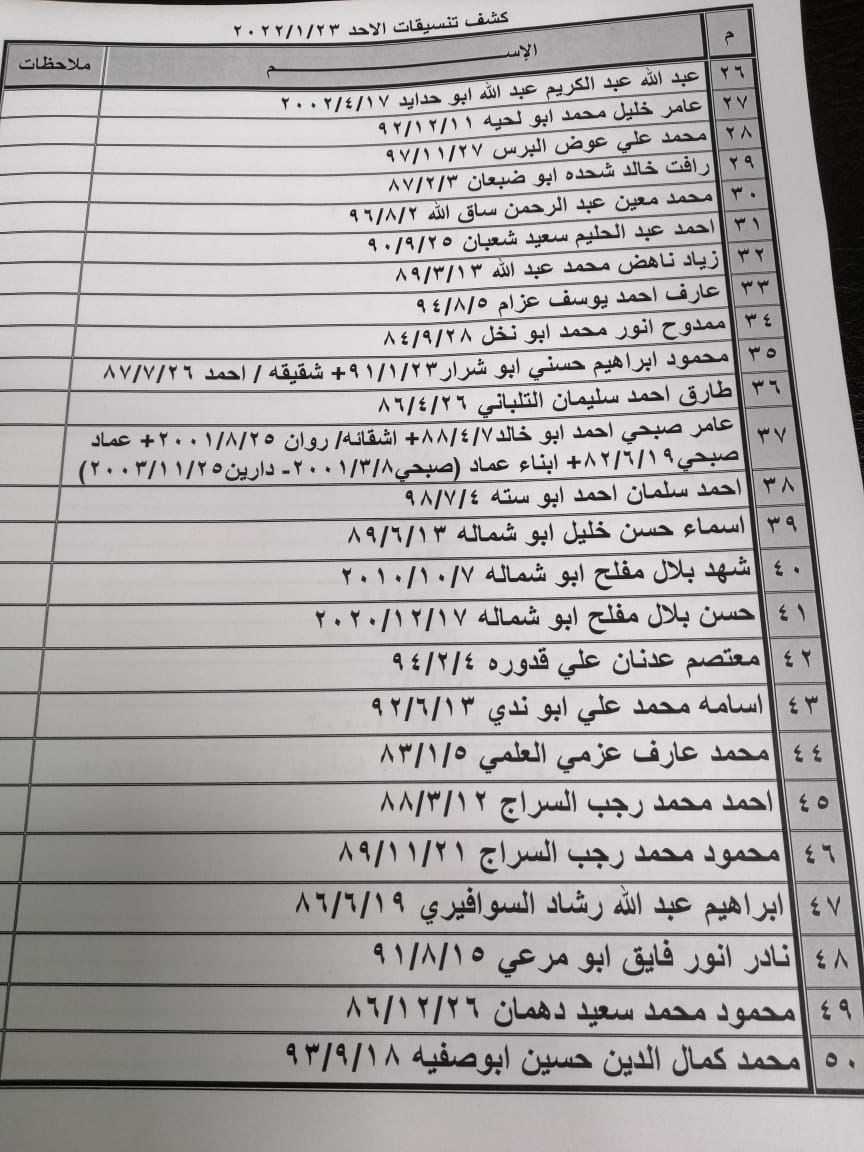 كشف تنسيقات الاحد ٢٠٢٢/١/٢٣
م الإســــــــم ملاحظات
٢٦ عبد الله عبد الكريم عبد الله ابو حدايد ٢٠٠٢/٤/١٧
٢٧ عامر خليل محمد ابو لحيه ٩٢/١٢/١١
٢٨ محمد علي عوض البرس ٩٧/١١/٢٧
٢٩ رافت خالد شحده ابو ضبعان ٨٧/٢/٣
٣٠ محمد معين عبد الرحمن ساق الله ٩٦/٨/٢
٣١ احمد عبد الحليم سعيد شعبان ٩٠/٩/٢٥
٣٢ زياد ناهض محمد عبد الله ٨٩/٣/١٣
٣٣ عارف احمد يوسف عزام ٩٤/٨/٥
٣٤ ممدوح انور محمد ابو نخل ٨٤/٩/٢٨
٣٥ محمود ابراهيم حسني ابو شرار٩١/١/٢٣+ شقيقه / احمد ٨٧/٧/٢٦
٣٦ طارق احمد سليمان التلباني ٨٦/٤/٢٦
٣٧ عامر صبحي احمد ابو خالد٨٨/٤/٧+ اشقائه/ روان ٢٠٠١/٨/٢٥+ عماد
صبحي٨٢/٦/١٩+ ابناء عماد (صبحي٢٠٠١/٣/٨- دارين٢٠٠٣/١١/٢٥)
٣٨ احمد سلمان احمد ابو سته ٩٨/٧/٤
٣٩ اسماء حسن خليل ابو شماله ٨٩/٦/١٣
٤٠ شهد بلال مفلح ابو شماله ٢٠١٠/١٠/٧
٤١ حسن بلال مفلح ابو شماله ٢٠٢٠/١٢/١٧
٤٢ معتصم عدنان علي قدوره ٩٤/٢/٤
٤٣ اسامه محمد علي ابو ندي ٩٢/٦/١٣
٤٤ محمد عارف عزمي العلمي ٨٣/١/٥
٤٥ احمد محمد رجب السراج ٨٨/٣/١٢
٤٦ محمود محمد رجب السراج ٨٩/١١/٢١
٤٧ ابراهيم عبد الله رشاد السوافيري ٨٦/٦/١٩
٤٨ نادر انور فايق ابو مرعي ٩١/٨/١٥
٤٩ محمود محمد سعيد دهمان ٨٦/١٢/٢٦
٥٠ محمد كمال الدين حسين ابوصفيه ٩٣/٩/١٨